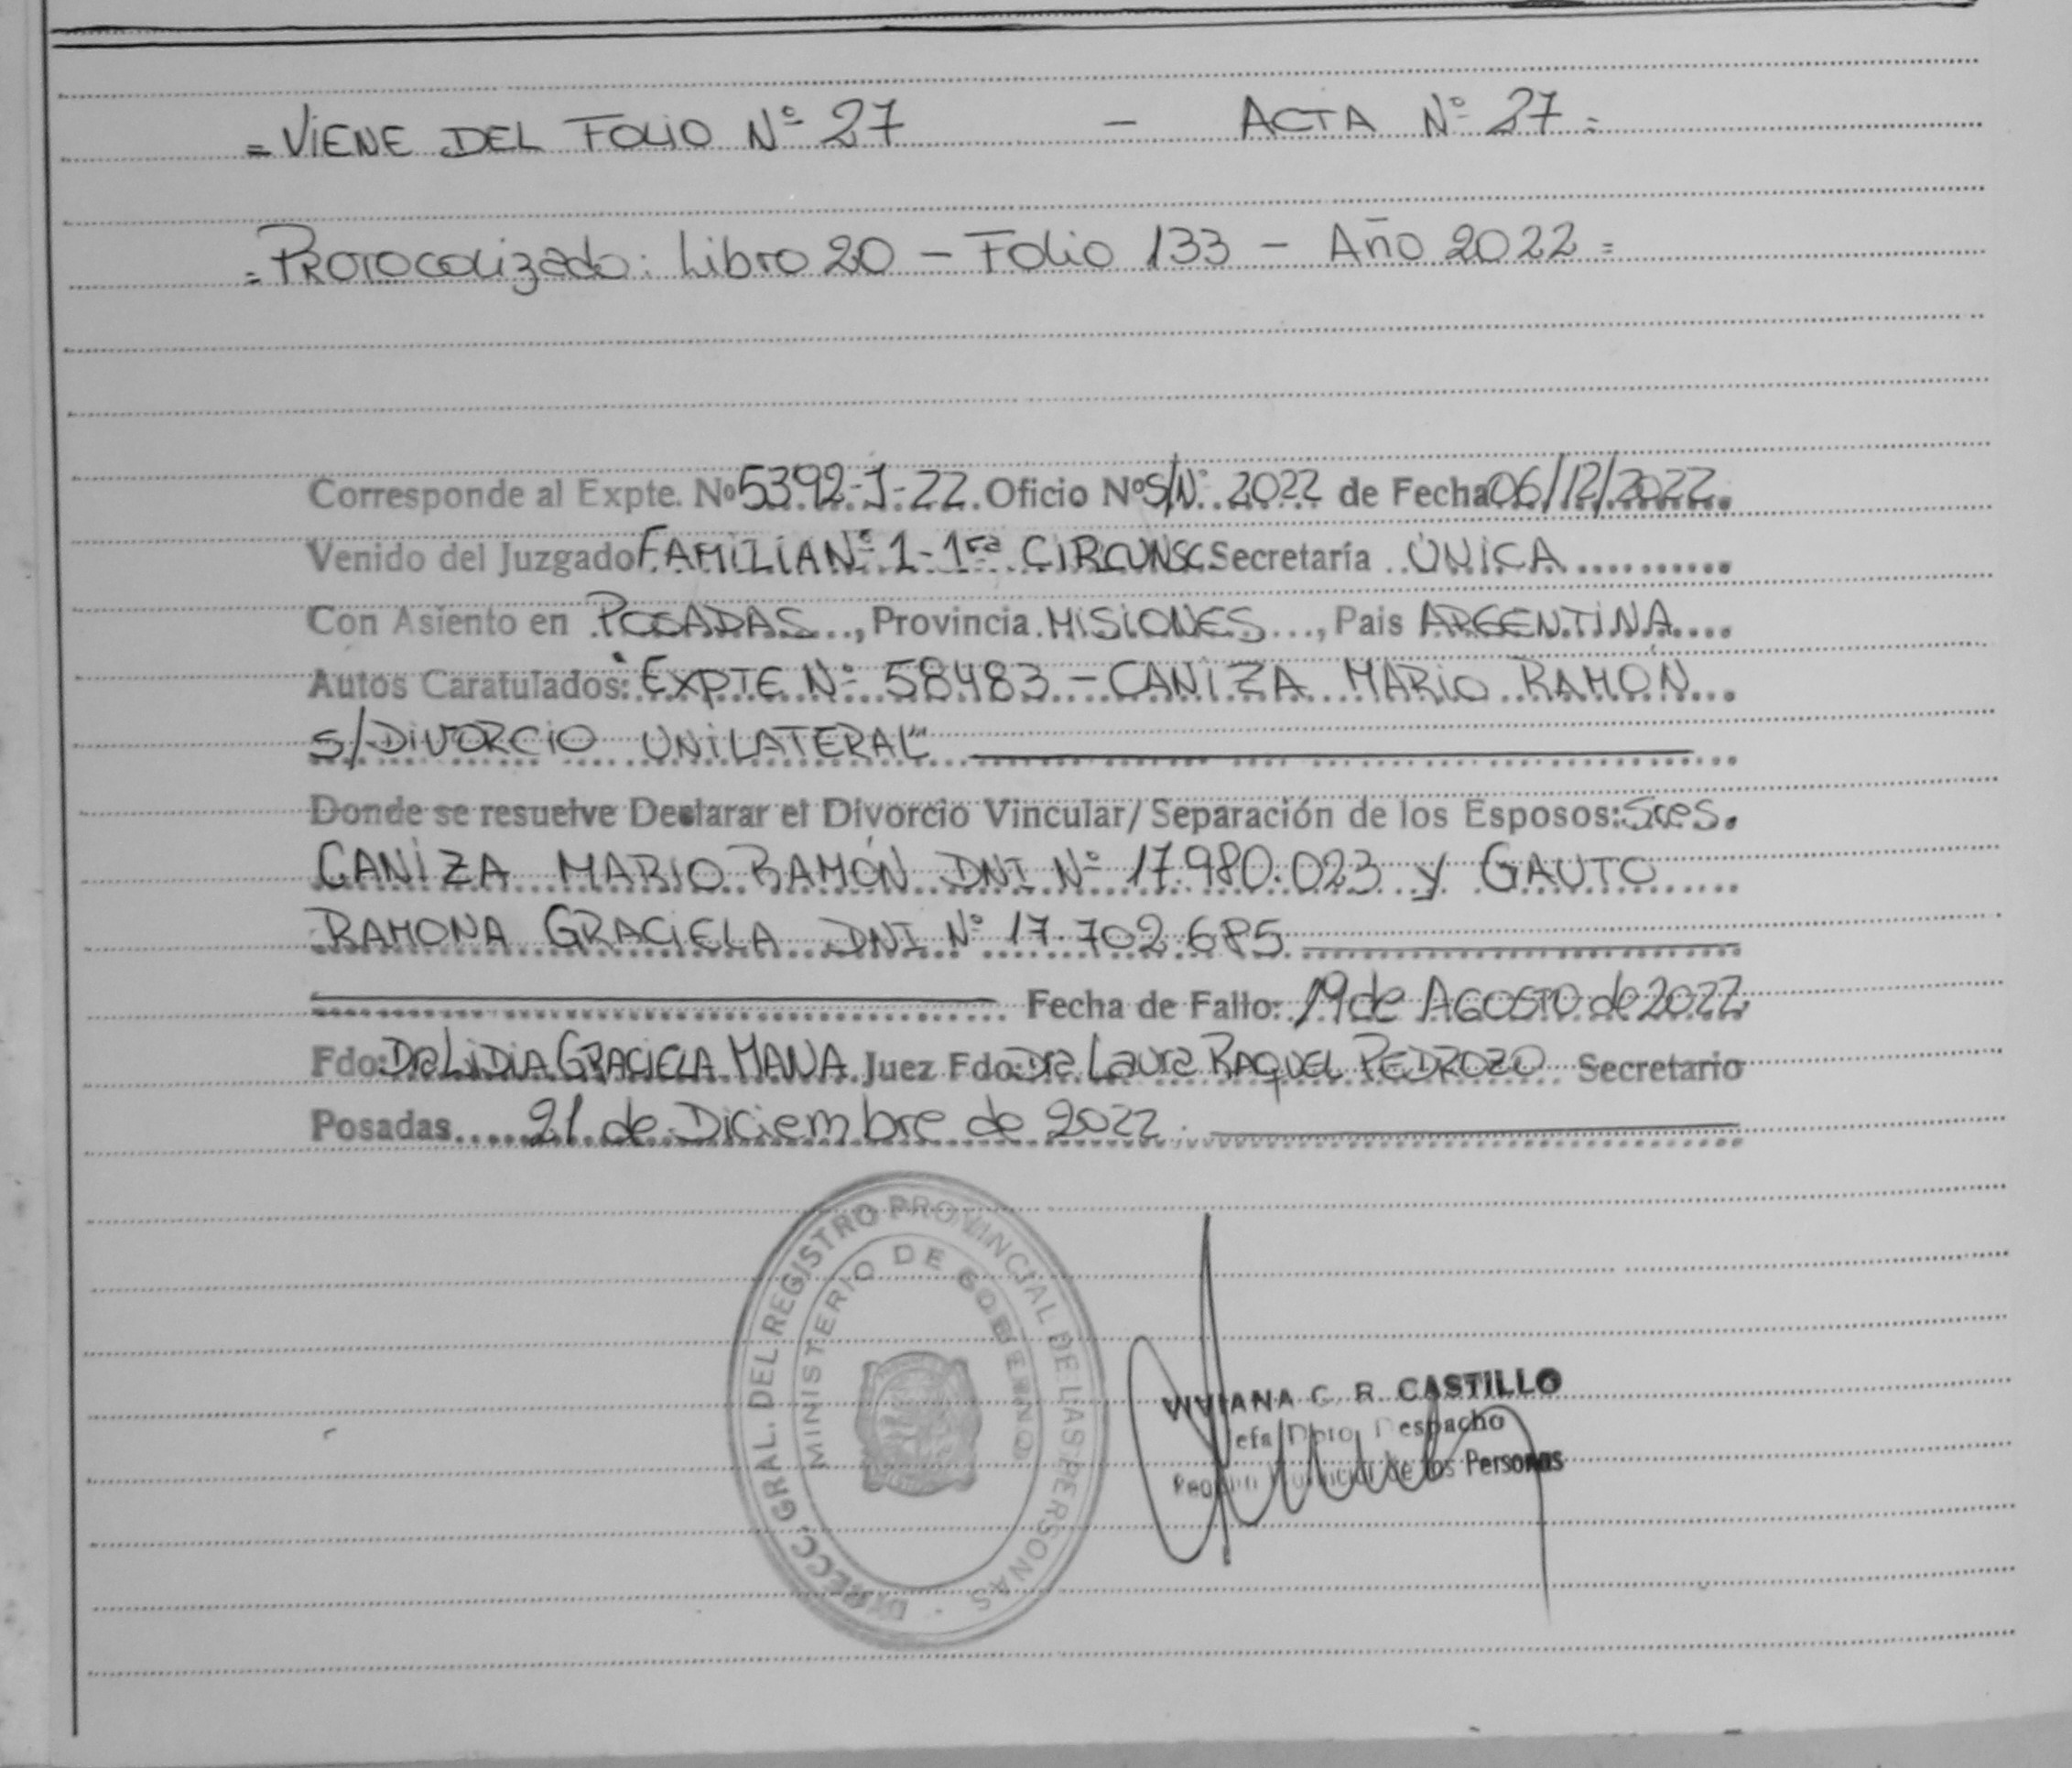 = VIENE DEL FOLIO Nº 27 - ACTA Nº 27 =
= Protocolizado: Libro 20 - Folio 133 - Año 2022 =
Corresponde al Expte. Nº 5392-J-22. Oficio Nº S/Nº 2022 de Fecha 06/12/2022.
Venido del Juzgado FAMILIA Nº 1-1ra CIRCUNSC Secretaría ÚNICA
Con Asiento en POSADAS, Provincia MISIONES, Pais ARGENTINA
Autos Caratulados: "EXPTE Nº 58483 - CANIZA MARIO RAMÓN
S/DIVORCIO UNILATERAL"
Donde se resuelve Declarar el Divorcio Vincular/Separación de los Esposos: Sres.
CANIZA MARIO RAMÓN DNI Nº 17.980.023 y GAUTO
RAMONA GRACIELA DNI Nº 17.702.685
Fecha de Fallo: 19 de AGOSTO de 2022
Fdo: Dra LIDIA GRACIELA MANA Juez Fdo: Dra Laura RAQUEL PEDROZO Secretario
Posadas 21 de Diciembre de 2022.
DIRECC. GRAL. DEL REGISTRO PROVINCIAL DE LAS PERSONAS
MINISTERIO DE GOBIERNO
VIVIANA C. R. CASTILLO
Jefa Dpto. Despacho
de los Personas